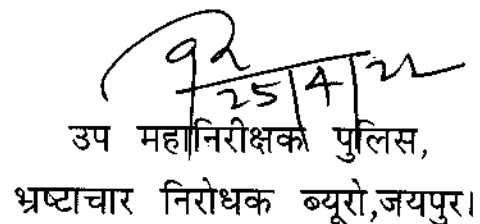 25/4/22
उप महानिरीक्षक पुलिस,
भ्रष्टाचार निरोधक ब्यूरो,जयपुर।